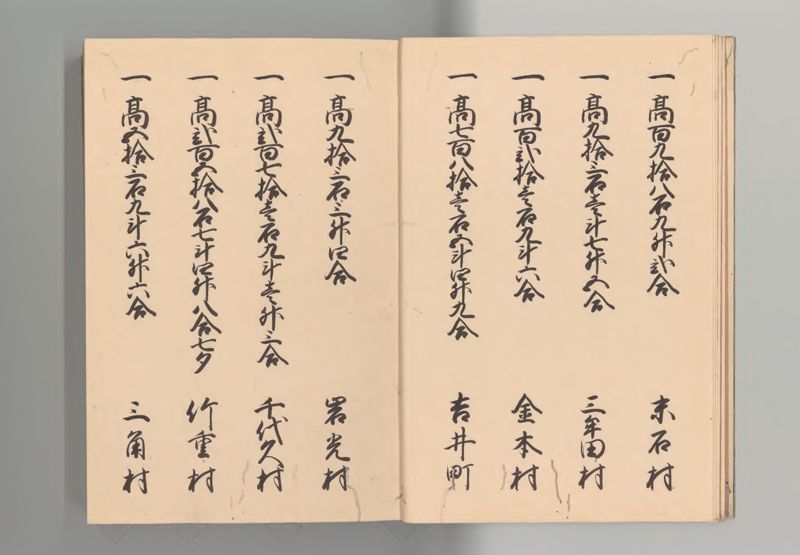 一高百九拾八石九升弐合 末石村
一高九拾三石壱斗七升五合 三牟田村
一高百弐拾壱石九斗六合 金本村
一高七百八拾壱石五斗四升九合 吉井町
一高九拾三石三升四合 岩光村
一高弐百七拾壱石九斗壱升三合 千代久村
一高弐百五拾八石七斗四升八合七夕 竹重村
一高五拾三石九斗六升六合 三角村